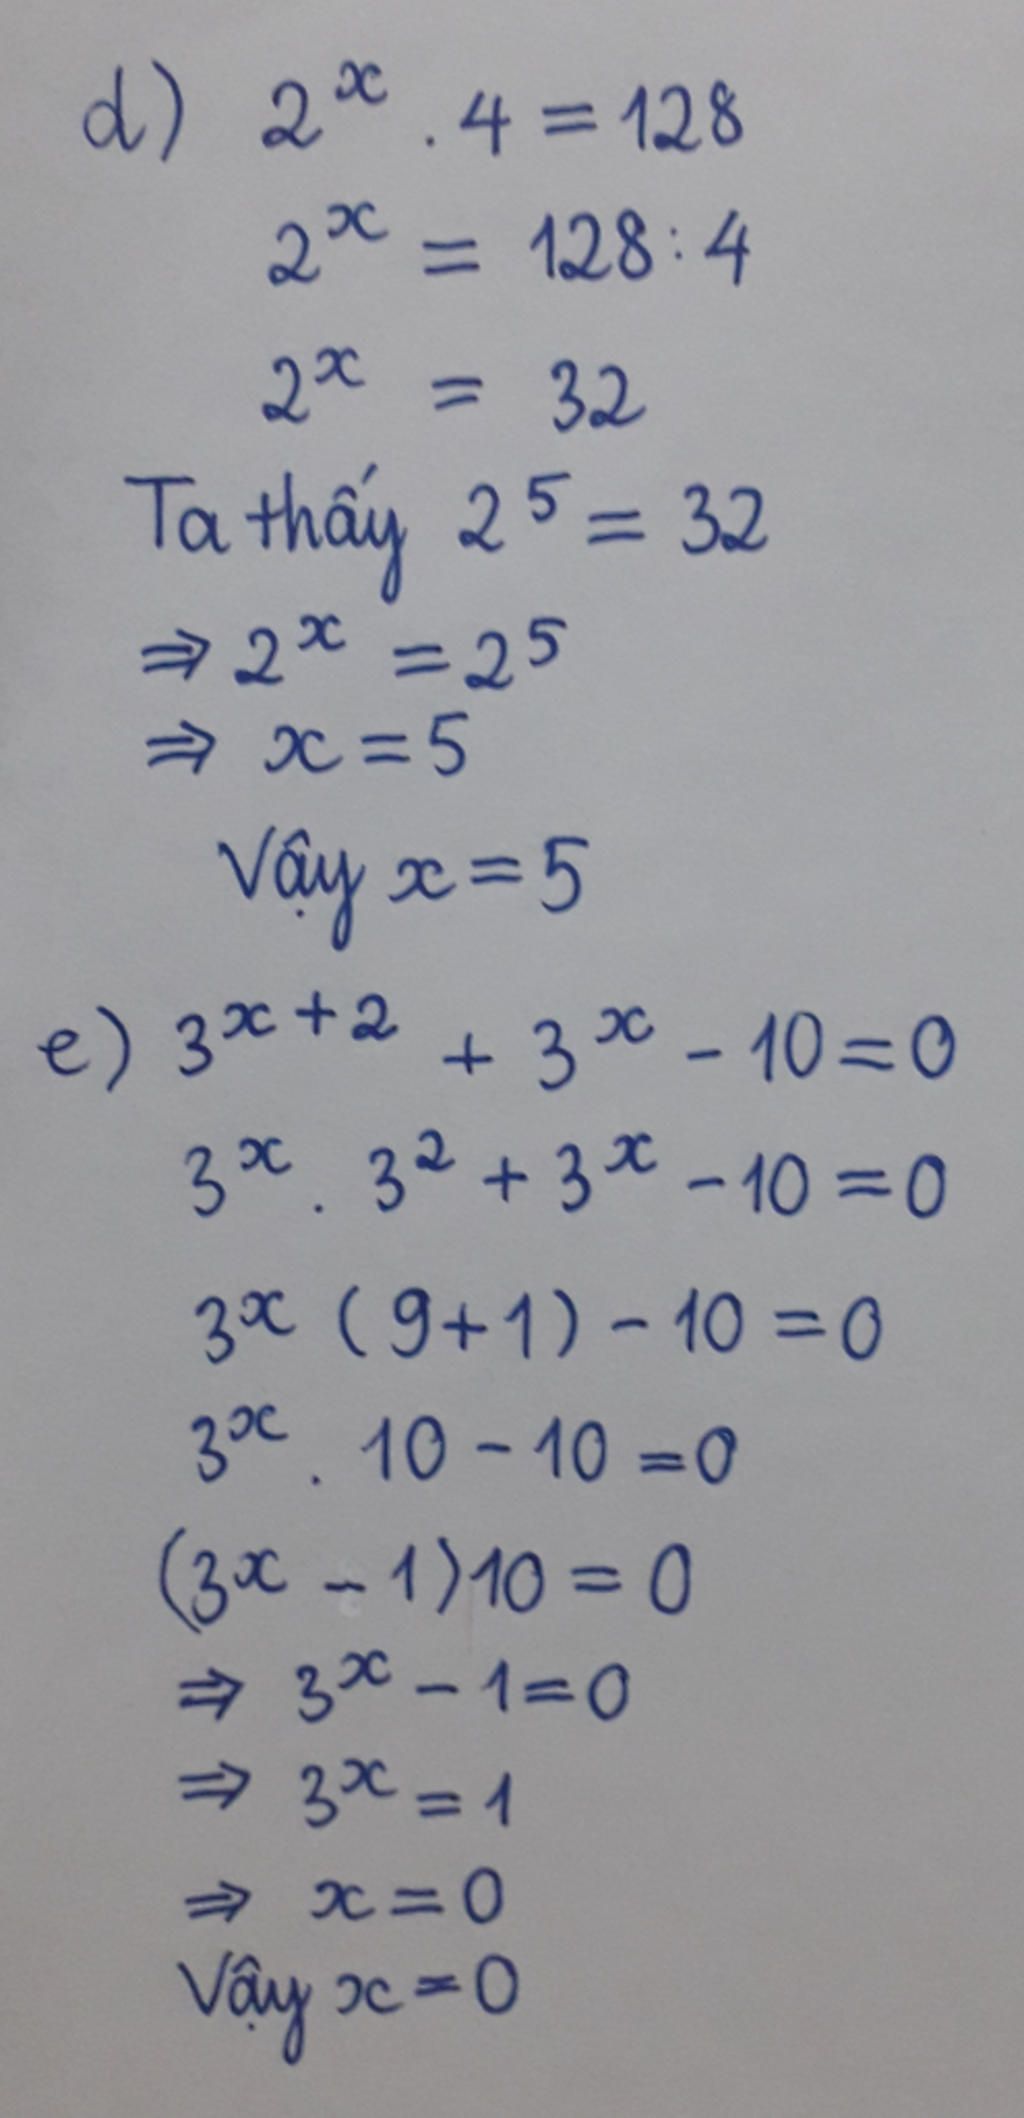 d) 2^x . 4 = 128
2^x = 128 : 4
2^x = 32
Ta thấy 2^5 = 32
⇒ 2^x = 2^5
⇒ x = 5
Vậy x = 5
e) 3^{x+2} + 3^x - 10 = 0
3^x . 3^2 + 3^x - 10 = 0
3^x (9+1) - 10 = 0
3^x . 10 - 10 = 0
(3^x - 1)10 = 0
⇒ 3^x - 1 = 0
⇒ 3^x = 1
⇒ x = 0
Vậy x = 0